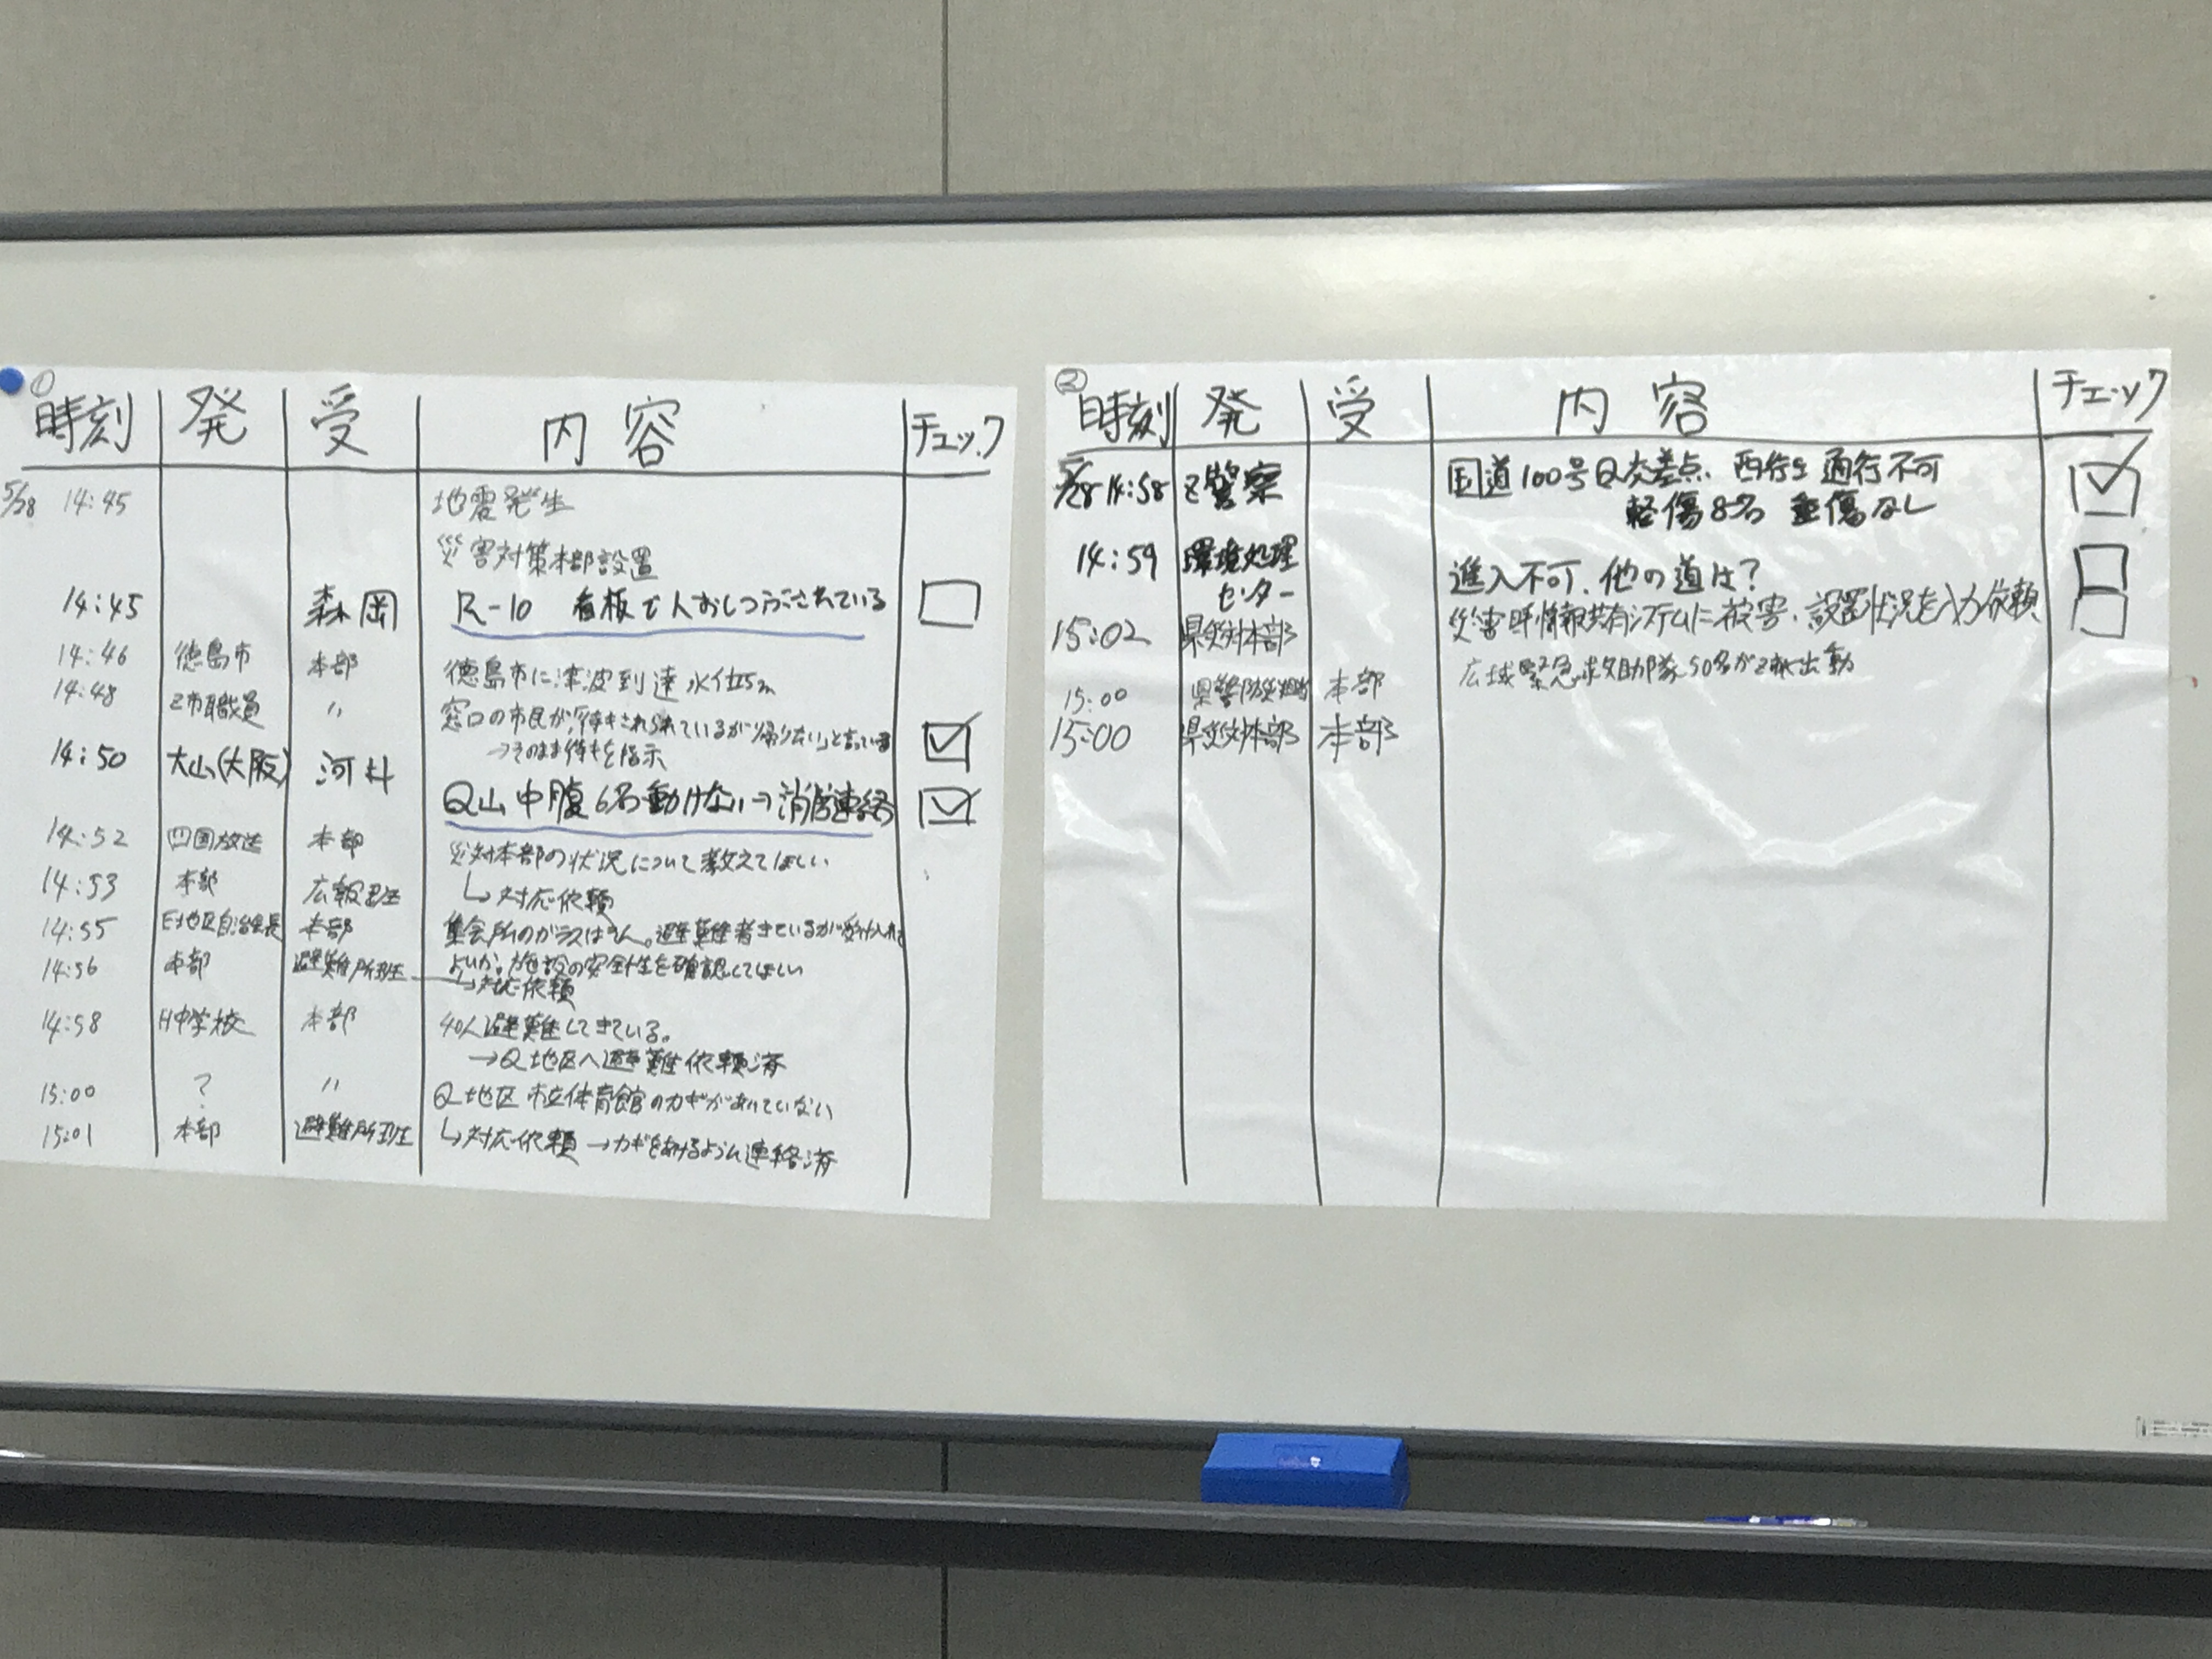 ①
時刻 発 受 内容 チェック
5/28 14:45 地震発生
災害対策本部設置
14:45 森岡 R-10 看板で人おしつぶされている
14:46 徳島市 本部 徳島市に津波到達 水位5m
14:48 Z市職員 〃 窓口の市民が「待機されられているが帰りたい」と言っている
→そのまま待機を指示
14:50 大山(大阪) 河井 Q山中腹 6名動けない→消防連絡
14:52 四国放送 本部 災対本部の状況について教えてほしい
14:53 本部 広報班 ↳対応依頼
14:55 E地区自治会長 本部 集会所のガラスはへん。避難者きているが受け入れて
14:56 本部 避難所班 よいか。施設の安全性を確認してほしい
→対応依頼
14:58 H中学校 本部 40人避難してきている。
→Q地区へ避難依頼済
15:00 ? 〃 Q地区 市立体育館のカギがあいていない
15:01 本部 避難所班 ↳対応依頼 →カギをあけるように連絡済
②
時刻 発 受 内容 チェック
5/28 14:58 Z警察 国道100号Q交差点、西行き通行不可
軽傷8名 重傷なし
14:59 環境処理 進入不可、他の道は?
センター
15:02 県災対本部 災害時情報共有システムに被害、設置状況を入力依頼
15:00 県警防災担当 本部 広域緊急救助隊50名が出動
15:00 県災対本部 本部